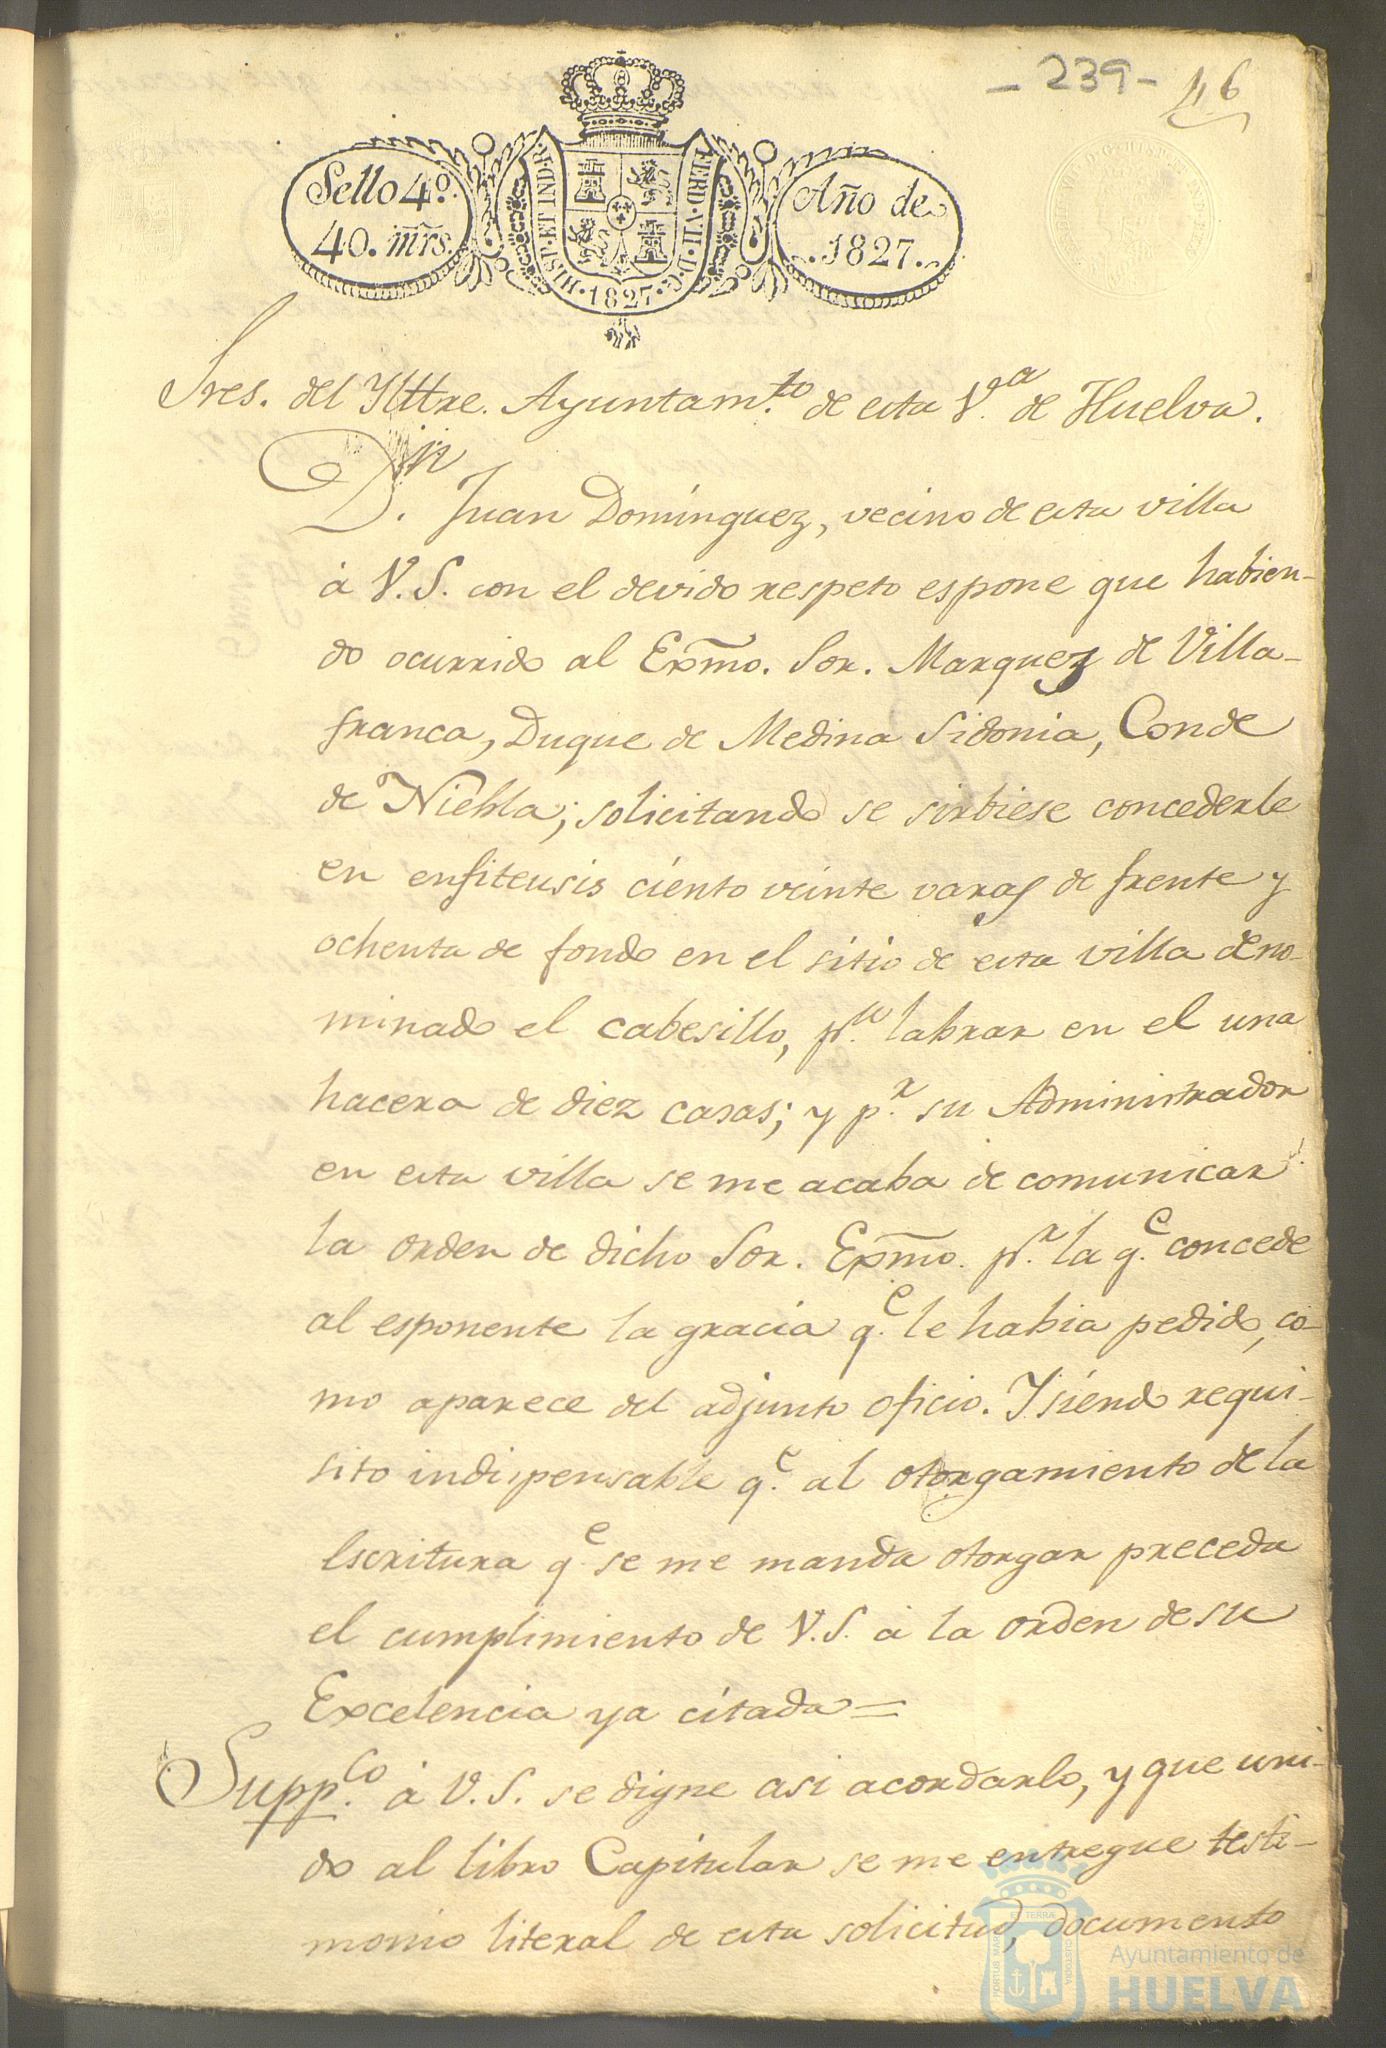 - 239 -
46
Sello 4º.
40. mrs.
HISP. ET IND. R. FERD. VII. D. G.
1827
Año de
1827.
Sres. del Ylttre. Ayuntam.to de esta V.a de Huelva.
D.n Juan Domínguez, vecino de esta villa
á V.S. con el devido respeto espone que habien-
do ocurrido al Exmo. Sor. Marquez de Villa-
franca, Duque de Medina Sidonia, Conde
de Niebla; solicitando se sirbiese concederle
en enfiteusis ciento veinte varas de frente y
ochenta de fondo en el sitio de esta villa deno-
minado el cabesillo, p.a labrar en el una
hacera de diez casas; y p.r su Administrador
en esta villa se me acaba de comunicar
la orden de dicho Sor. Exmo. p.r la q.e concede
al esponente la gracia q.e le habia pedido, co-
mo aparece del adjunto oficio. Y siendo requi-
sito indispensable q.e al otorgamiento de la
Escritura q.e se me manda otorgar preceda
el cumplimiento de V.S. á la orden de su
Excelencia ya citada=
Supp.co á V.S. se digne asi acordarlo, y que uni-
do al libro Capitular se me entregue testi-
monio literal de esta solicitud, documento
Ayuntamiento de
HUELVA